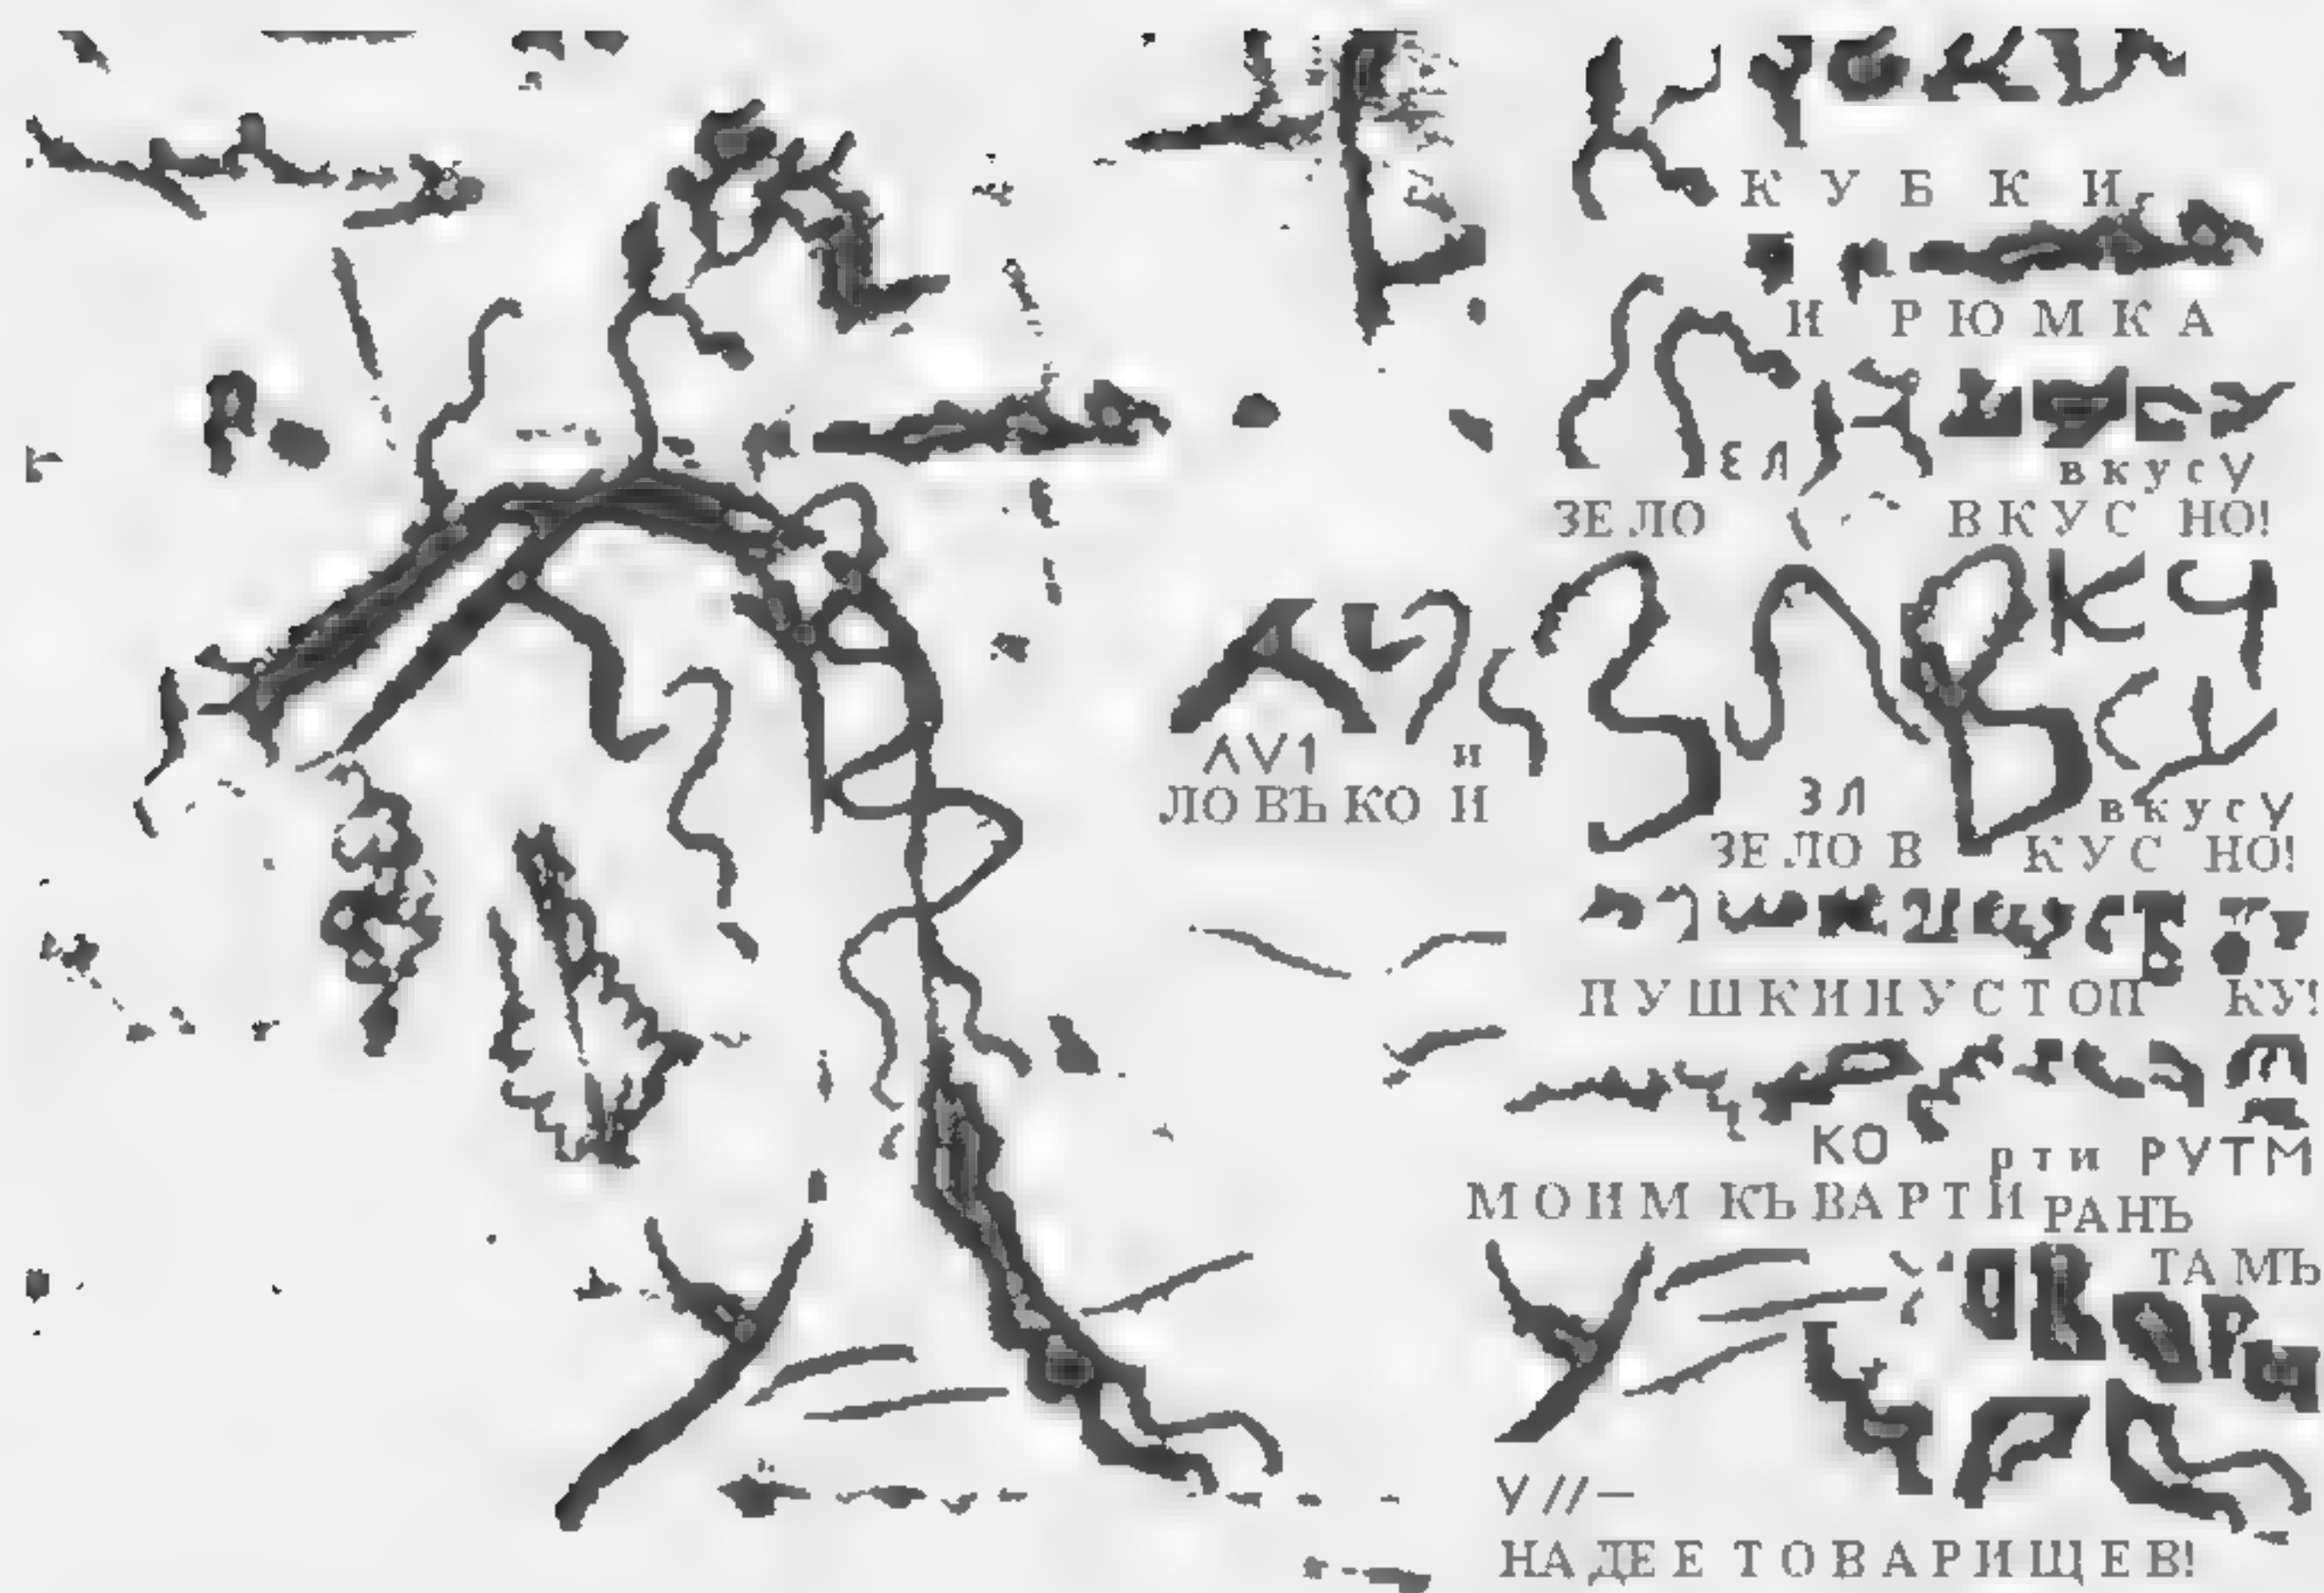 К У Б К И
И Р Ю М К А
ε Л в к у с У
ЗЕЛО ВКУС НО!
ΛV1 и
ЛО ВЪ КО И
З Л в к у с У
ЗЕЛО В КУС НО!
ПУШКИНУ СТОП КУ!
КО р т и РУТМ
МОИМ КЪ ВАРТИ РАНЪ
ТАМЪ
У // —
НАДЕЕ ТОВАРИЩЕВ!